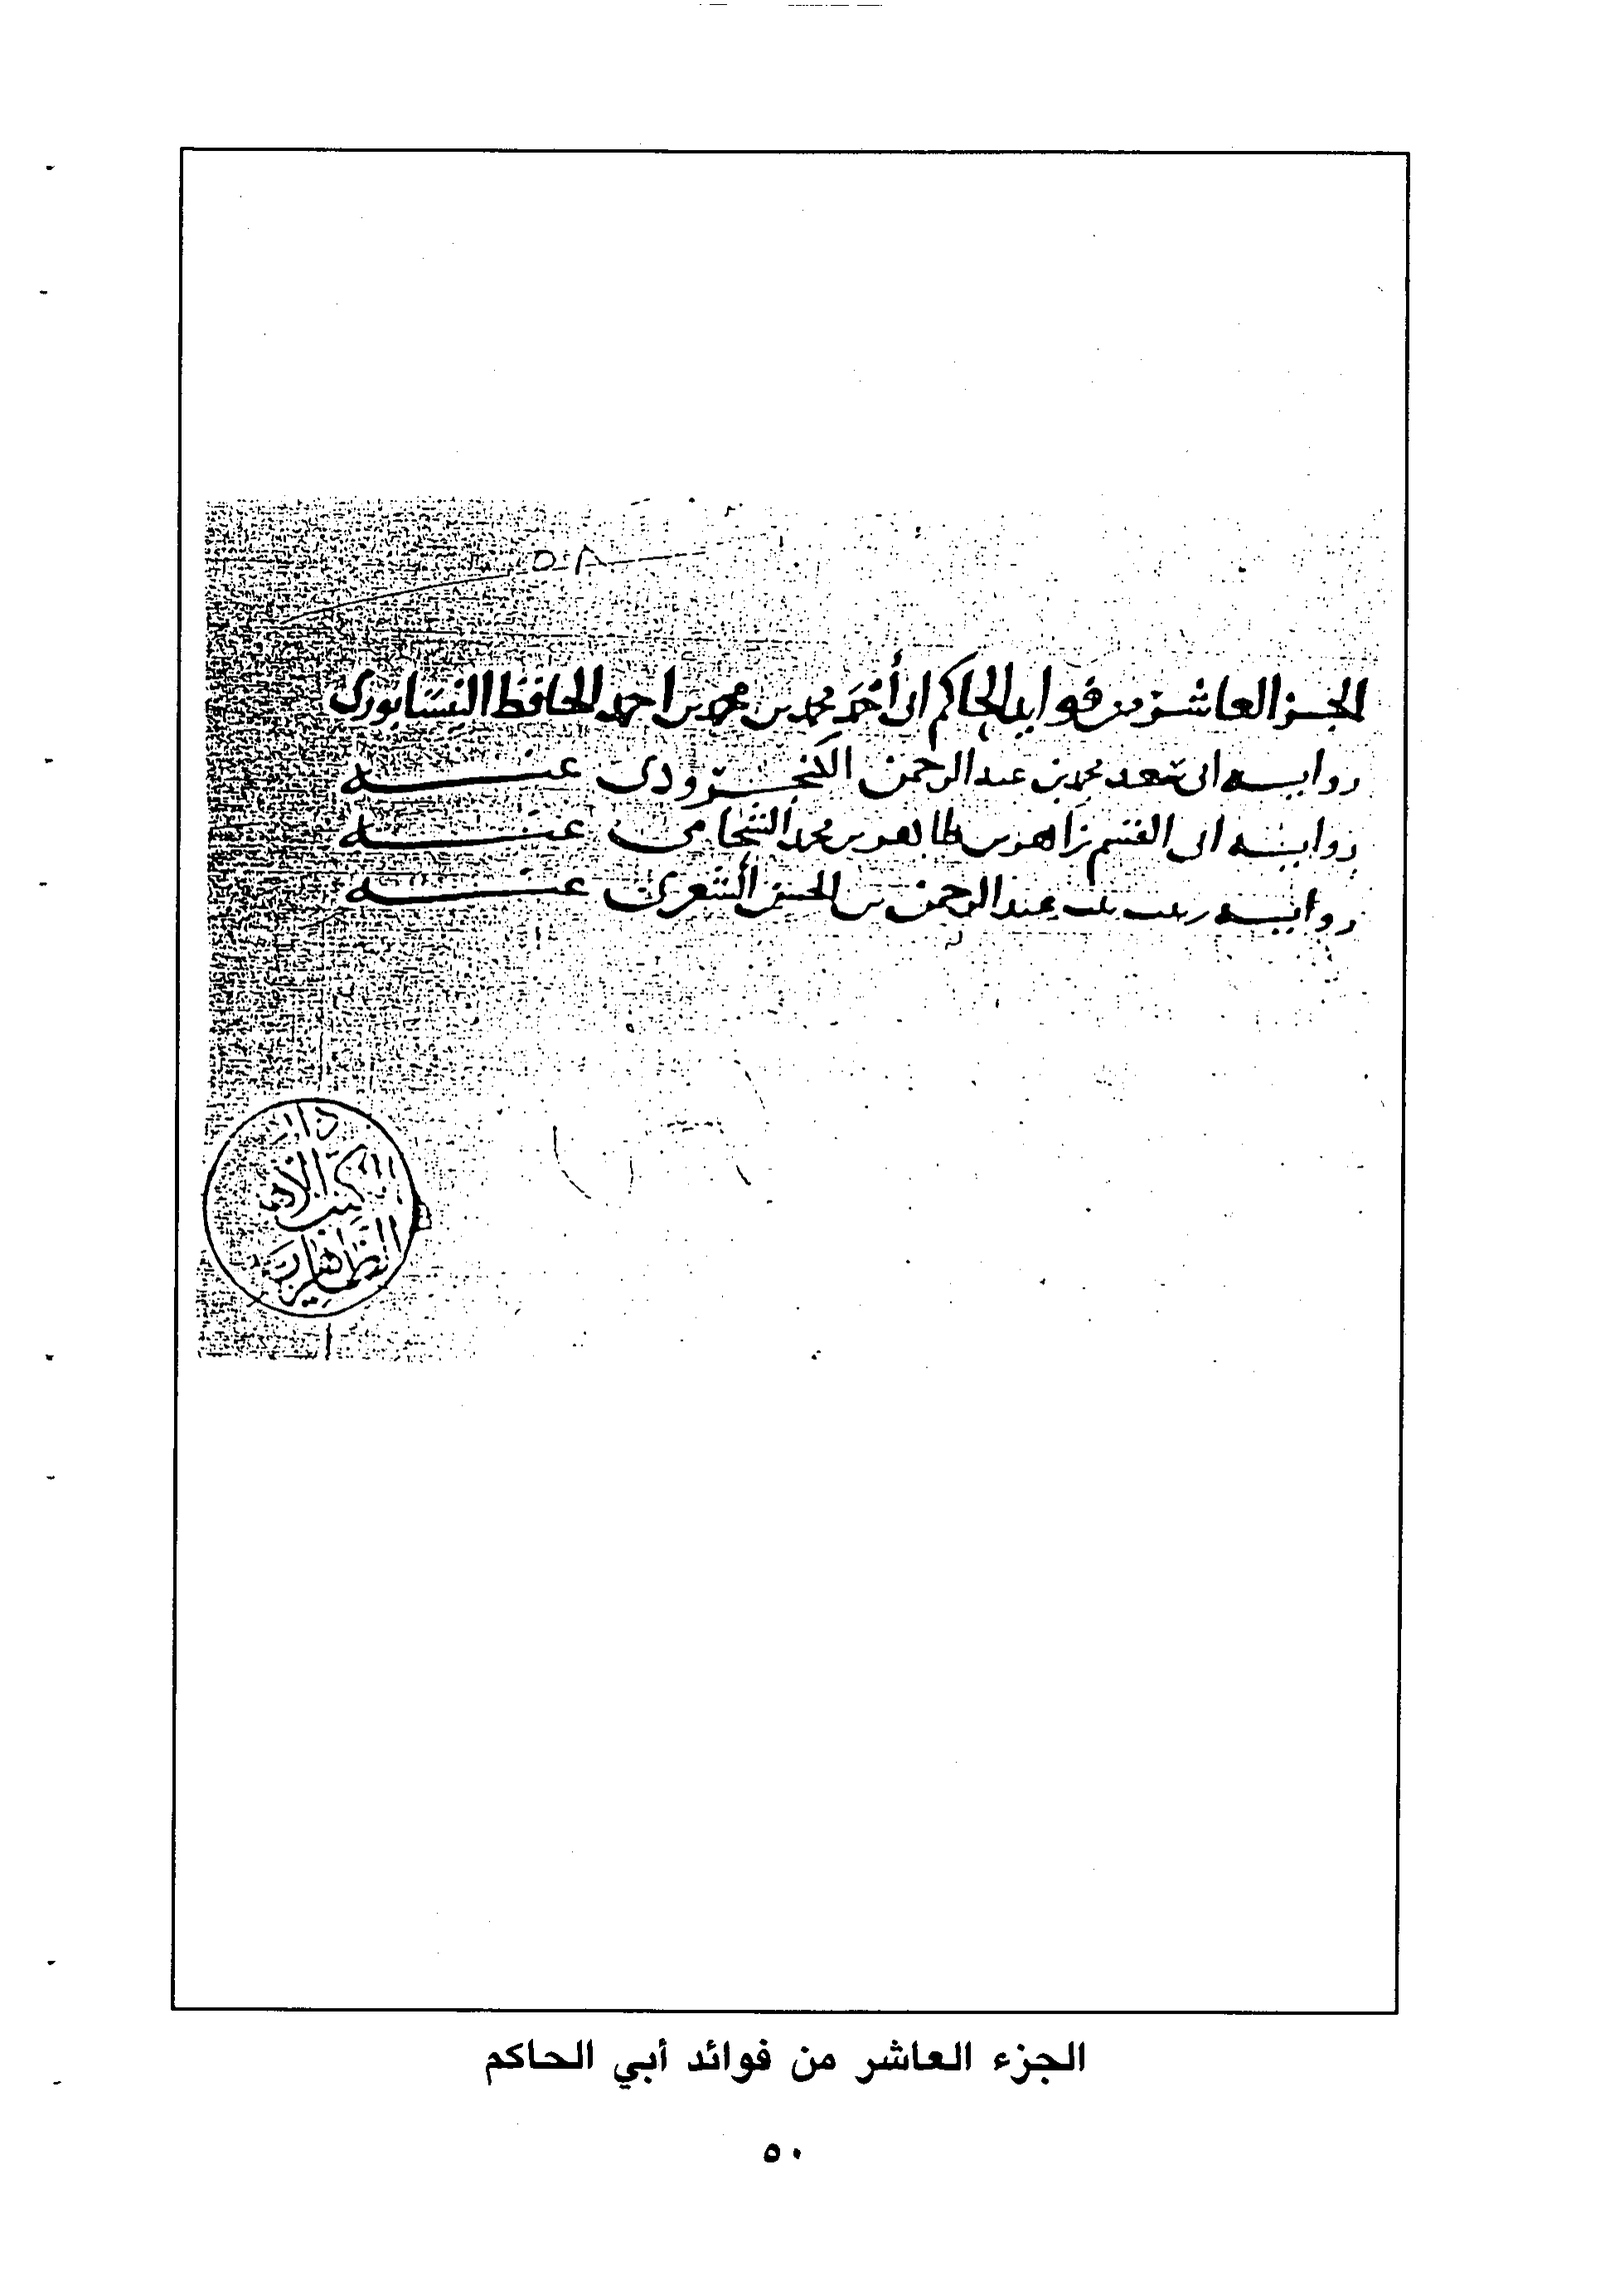 الجز العاشر من فوايد الحاكم ابى أحمد محمد بن محمد بن احمد الحافظ النيسابورى
روايه ابى سعد محمد بن عبد الرحمن الكنجرودى عنه
روايه ابى القسم زاهر بن طاهر بن محمد الشحامى عنه
روايه زينب بنت عبد الرحمن بن الحسن الشعرى عنه
دار
الكتب الأهلية
الظاهرية
الجزء العاشر من فوائد أبي الحاكم
٥٠